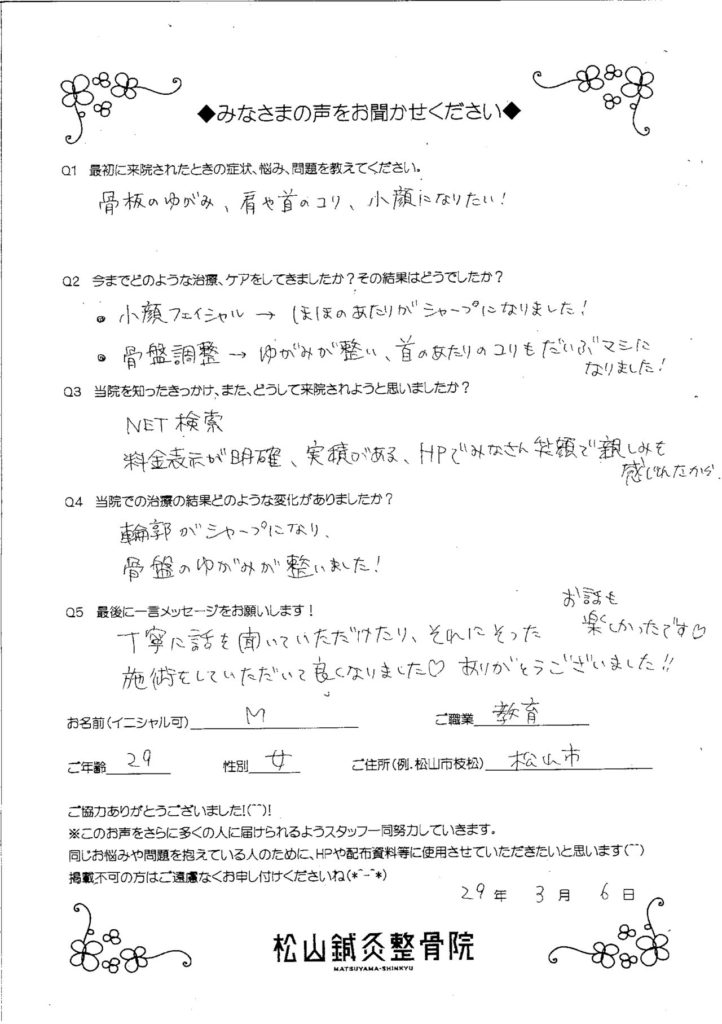 ◆みなさまの声をお聞かせください◆
Q1 最初に来院されたときの症状、悩み、問題を教えてください。
骨板のゆがみ、肩や首のコリ、小顔になりたい!
Q2 今までどのような治療、ケアをしてきましたか?その結果はどうでしたか?
• 小顔フェイシャル → ほほのあたりがシャープになりました!
• 骨盤調整 → ゆがみが整い、首のあたりのコリもだいぶマシに
なりました!
Q3 当院を知ったきっかけ、また、どうして来院されようと思いましたか?
NET検索
料金表示が明確、実積がある、HPでみなさん笑顔で親しみを
感じれたから。
Q4 当院での治療の結果どのような変化がありましたか?
輪郭がシャープになり、
骨盤のゆがみが整いました!
Q5 最後に一言メッセージをお願いします!
丁寧に話を聞いていただけたり、それにそった
施術をしていただいて良くなりました♡ ありがとうございました!!
お話も
楽しかったです♡
お名前(イニシャル可) M ご職業 教育
ご年齢 29 性別 女 ご住所(例.松山市枝松) 松山市
ご協力ありがとうございました!(⌒⌒)!
※このお声をさらに多くの人に届けられるようスタッフ一同努力していきます。
同じお悩みや問題を抱えている人のために、HPや配布資料等に使用させていただきたいと思います(⌒⌒)
掲載不可の方はご遠慮なくお申し付けくださいね(*^-^*)
29年 3月 6日
松山鍼灸整骨院
MATSUYAMA-SHINKYU